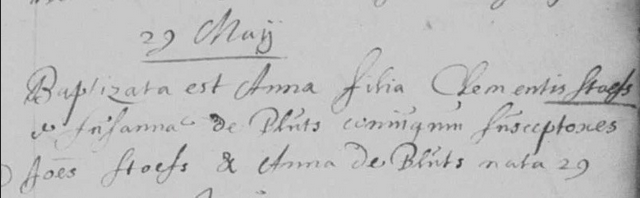 29 Maij
Baptizata est Anna filia Clementis Stoefs
& Susannae de Bluts coniugum susceptores
Joēs Stoefs & Anna de Bluts nata 29